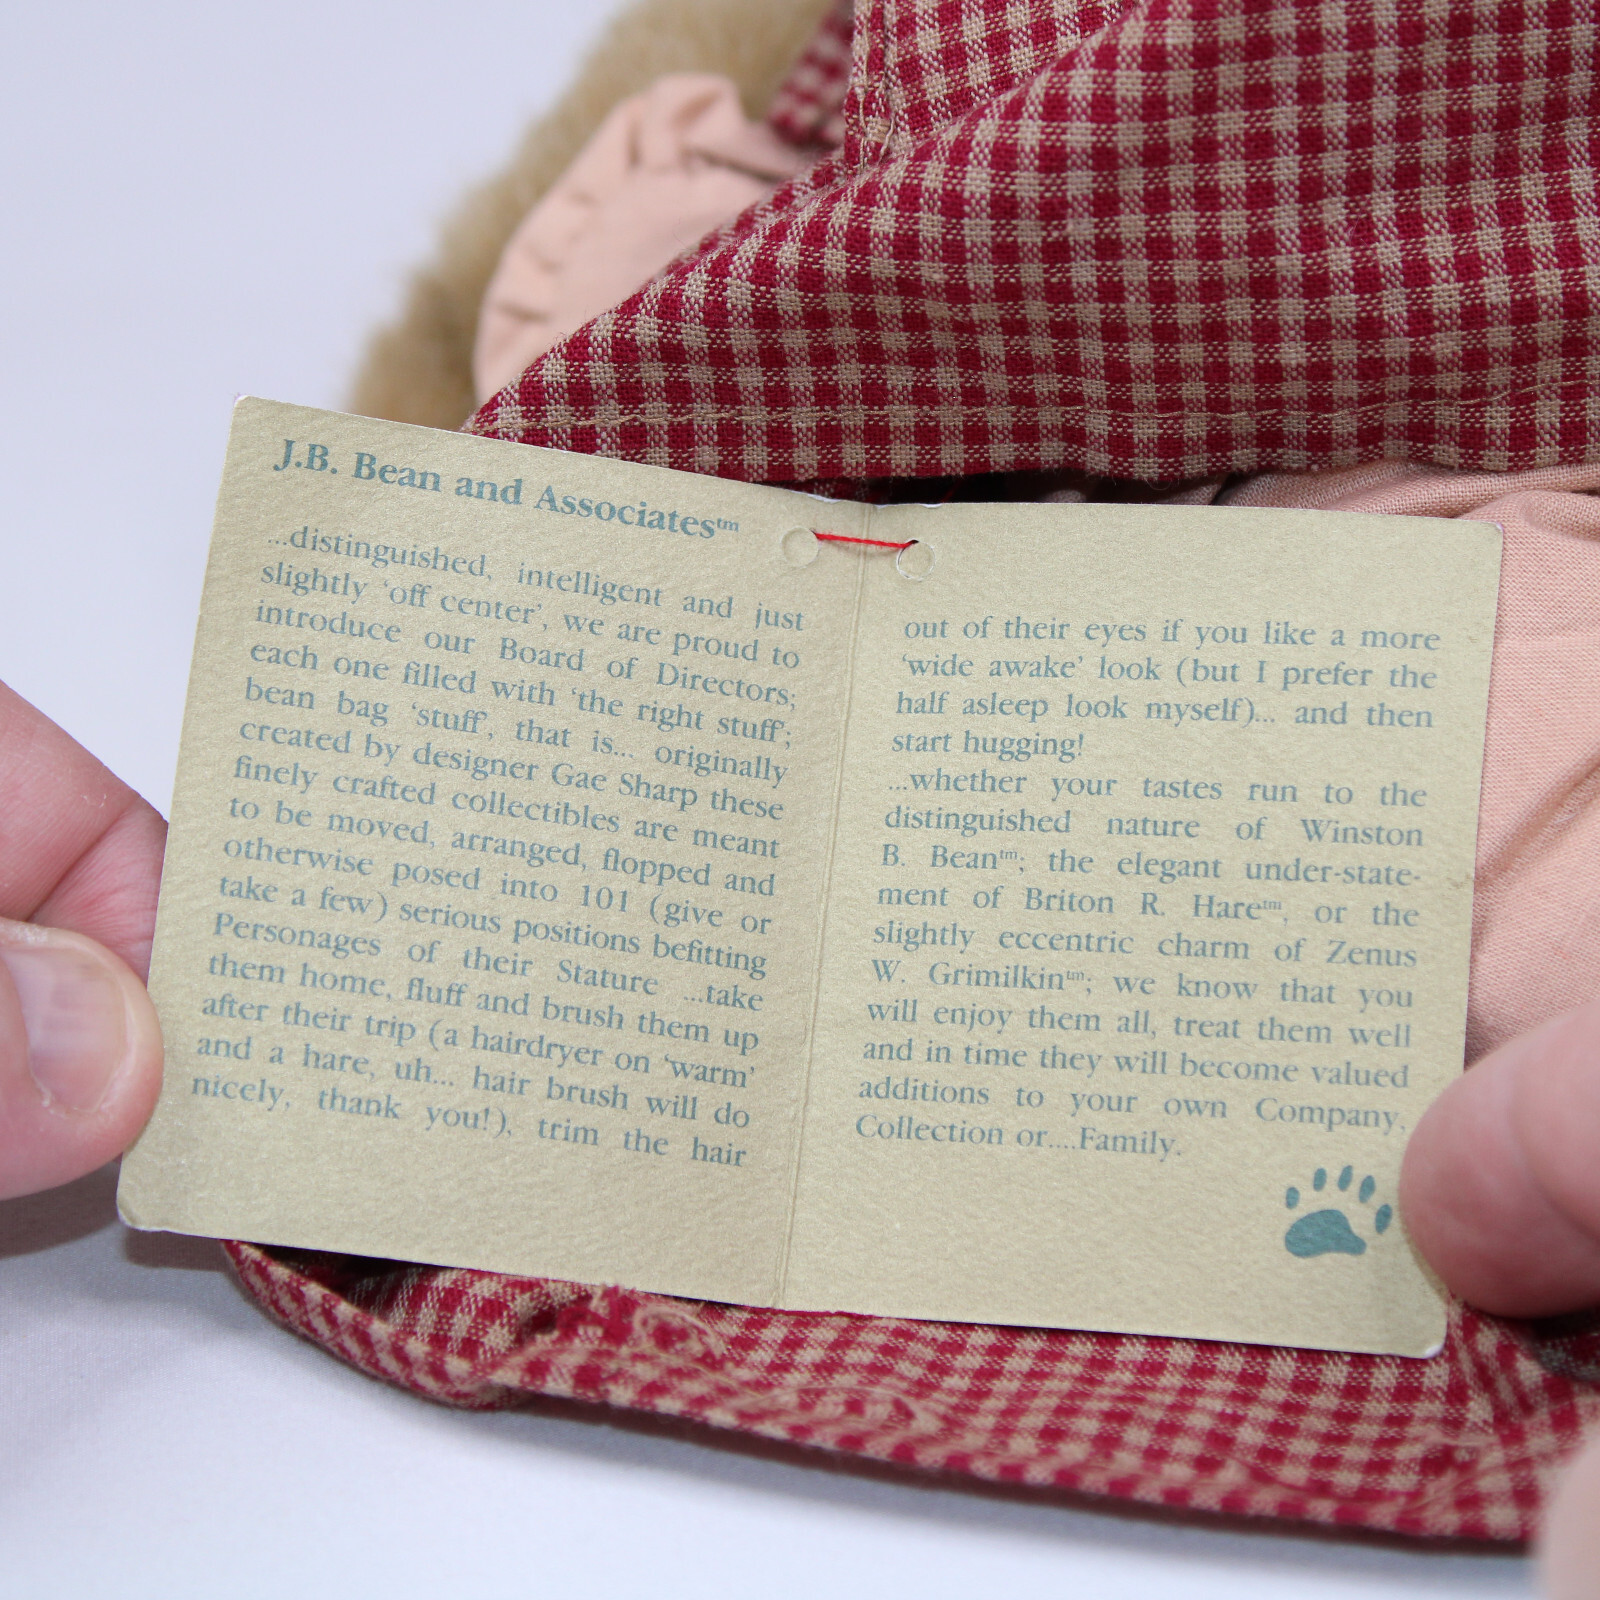 J.B. Bean and Associates™
...distinguished, intelligent and just
slightly ‘off center’, we are proud to
introduce our Board of Directors;
each one filled with ‘the right stuff’;
bean bag ‘stuff’, that is... originally
created by designer Gae Sharp these
finely crafted collectibles are meant
to be moved, arranged, flopped and
otherwise posed into 101 (give or
take a few) serious positions befitting
Personages of their Stature ...take
them home, fluff and brush them up
after their trip (a hairdryer on ‘warm’
and a hare, uh... hair brush will do
nicely, thank you!), trim the hair
out of their eyes if you like a more
‘wide awake’ look (but I prefer the
half asleep look myself)... and then
start hugging!
...whether your tastes run to the
distinguished nature of Winston
B. Bean™; the elegant under-state-
ment of Briton R. Hare™, or the
slightly eccentric charm of Zenus
W. Grimilkin™; we know that you
will enjoy them all, treat them well
and in time they will become valued
additions to your own Company,
Collection or....Family.